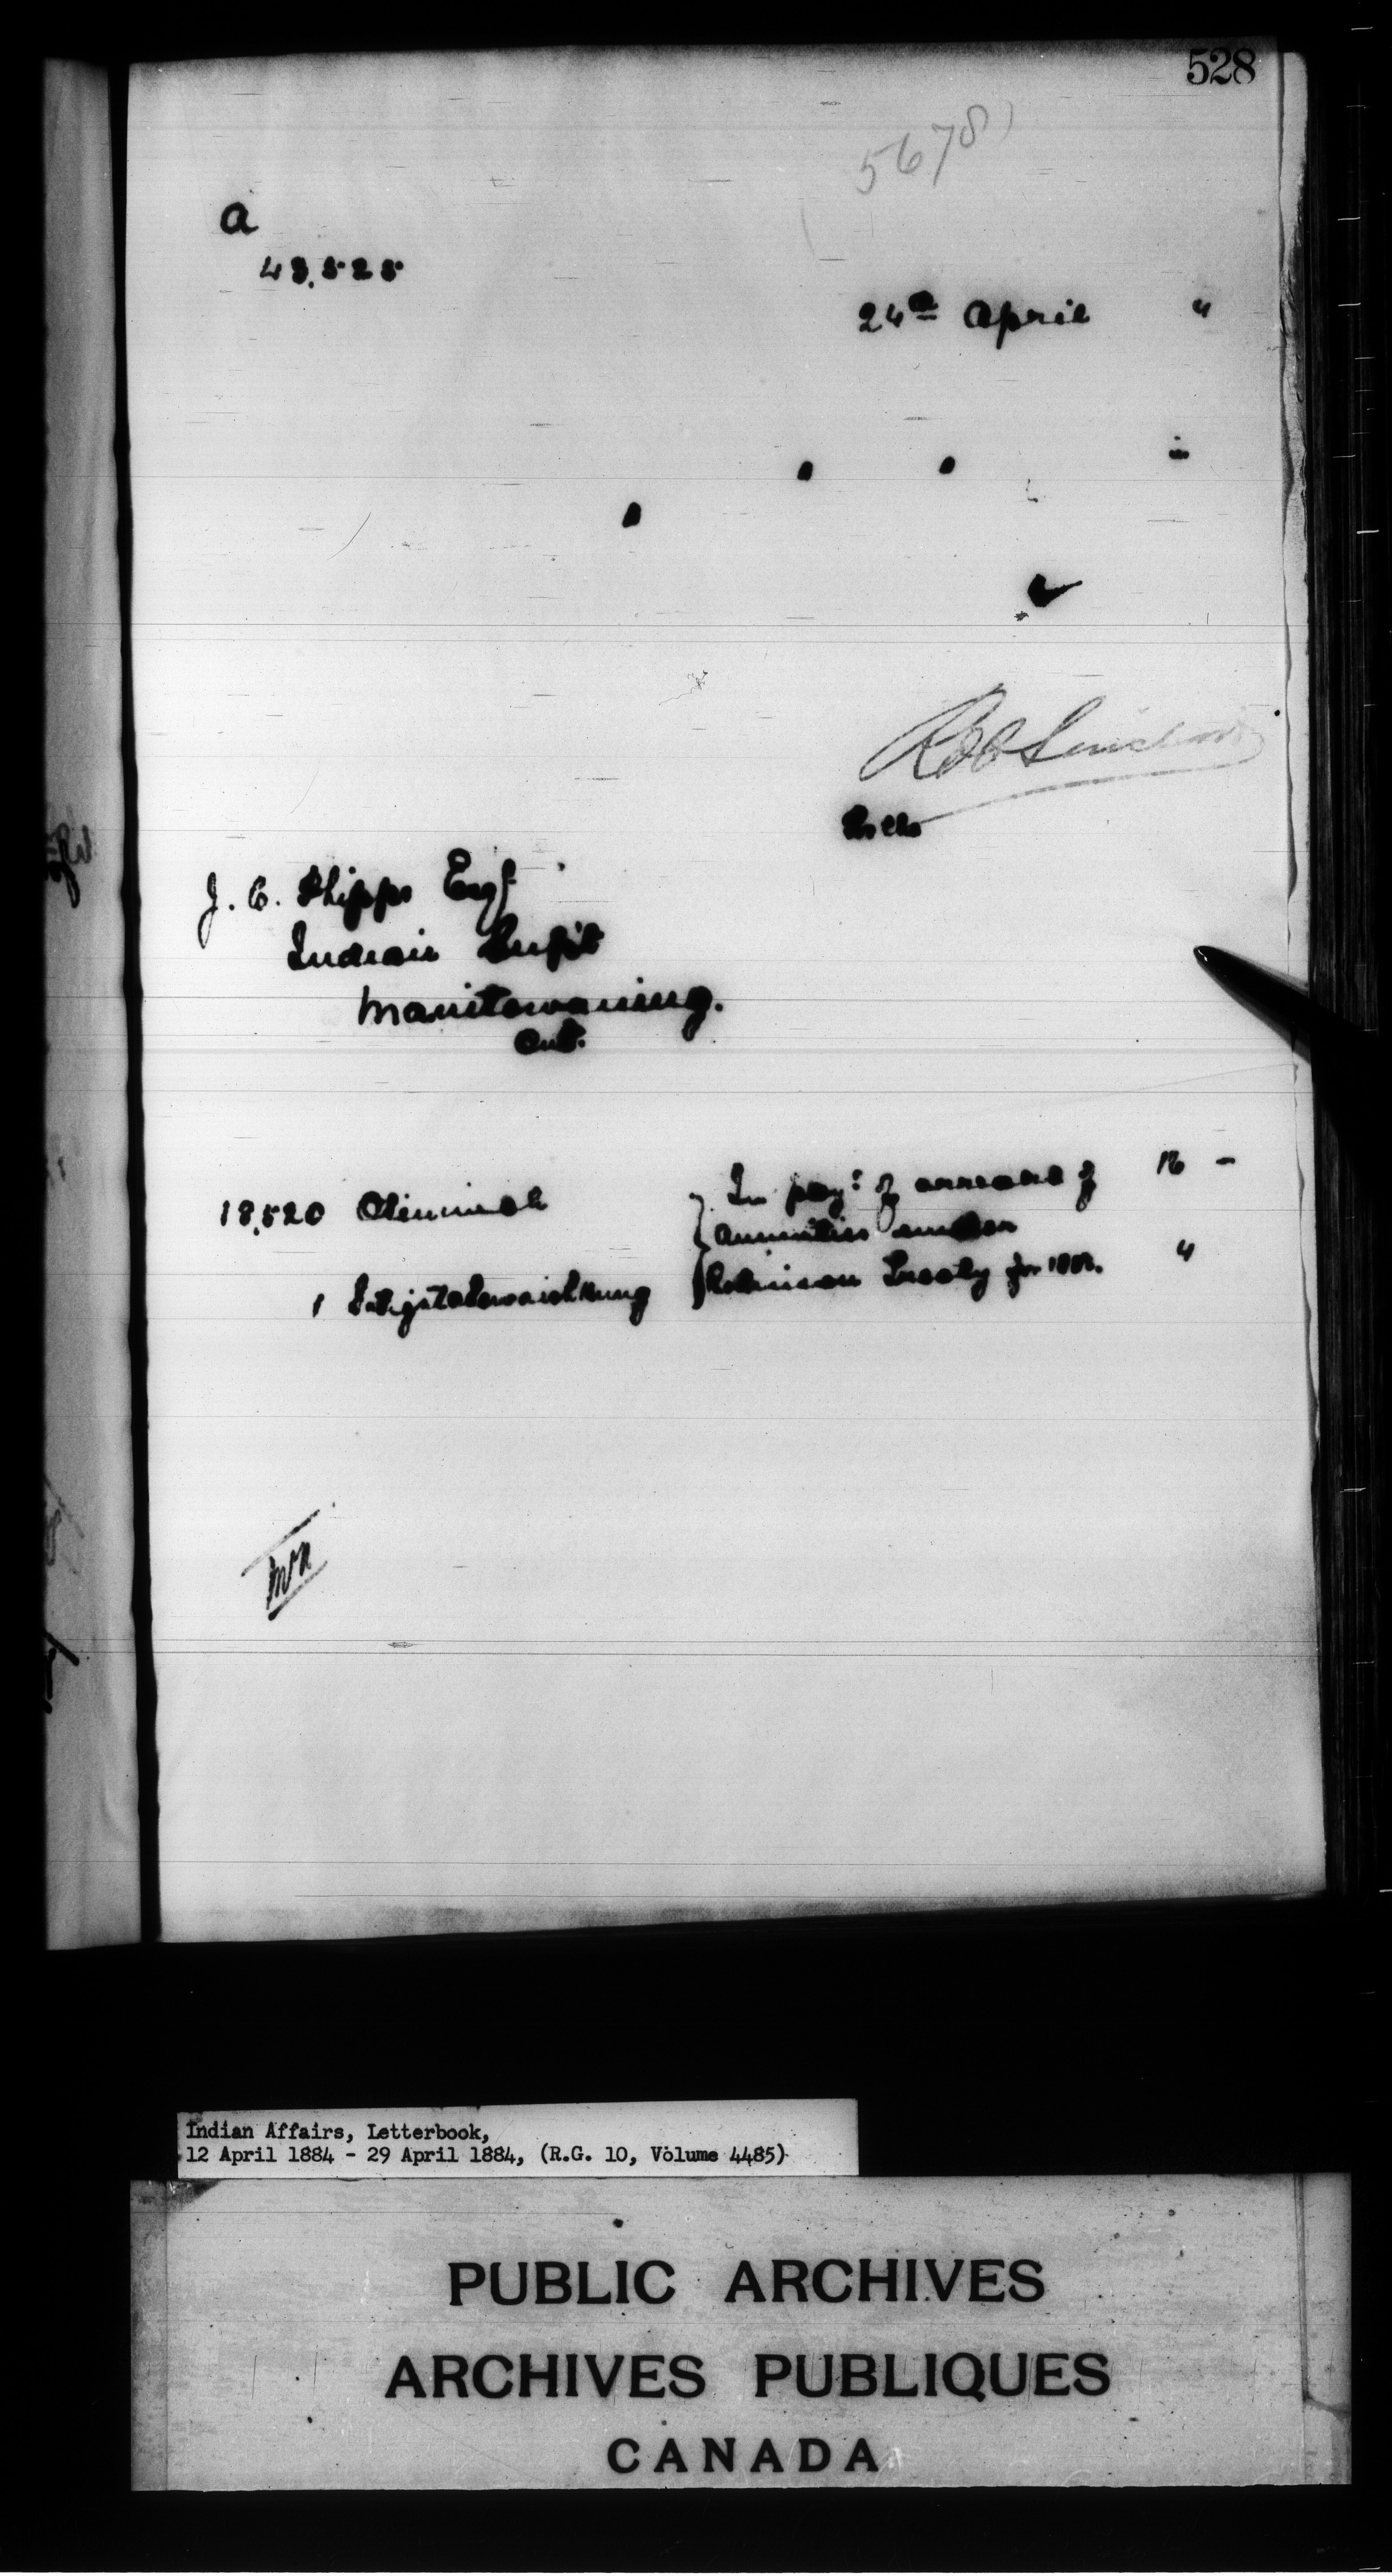 528
5678
a
43,525
24th April "
J. C. Phipps Esq
Indian Supt
Manitowaning.
Ont.
18,520 In payt of arrears of 16 –
annuities under
1 Robinson Treaty for "
Indian Affairs, Letterbook,
12 April 1884 - 29 April 1884, (R.G. 10, Volume 4485)
PUBLIC ARCHIVES
ARCHIVES PUBLIQUES
CANADA